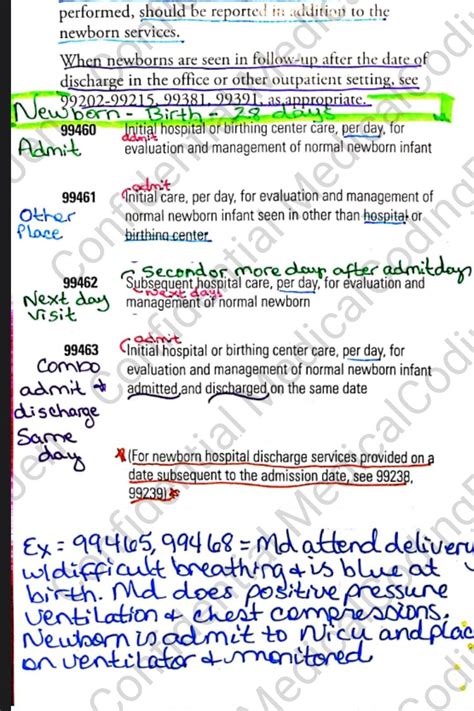 performed, should be reported in addition to the
newborn services.
When newborns are seen in follow-up after the date of
discharge in the office or other outpatient setting, see
99202-99215, 99381, 99391, as appropriate.
Newborn - Birth - 28 days
99460 Initial hospital or birthing center care, per day, for
admit
Admit evaluation and management of normal newborn infant
admit
99461 Initial care, per day, for evaluation and management of
Other normal newborn infant seen in other than hospital or
Place birthing center
Second or more day after admit day
99462 Subsequent hospital care, per day, for evaluation and
next days
Next day management of normal newborn
visit
admit
99463 Initial hospital or birthing center care, per day, for
Combo evaluation and management of normal newborn infant
admit + admitted and discharged on the same date
discharge
Same
day
*(For newborn hospital discharge services provided on a
date subsequent to the admission date, see 99238,
99239)*
Ex = 99465, 99468 = Md attend delivery
w/difficult breathing + is blue at
birth. Md does positive pressure
ventilation + chest compressions.
Newborn is admit to Nicu and plac
on ventilator + monitored
Confidential MedicalCoding